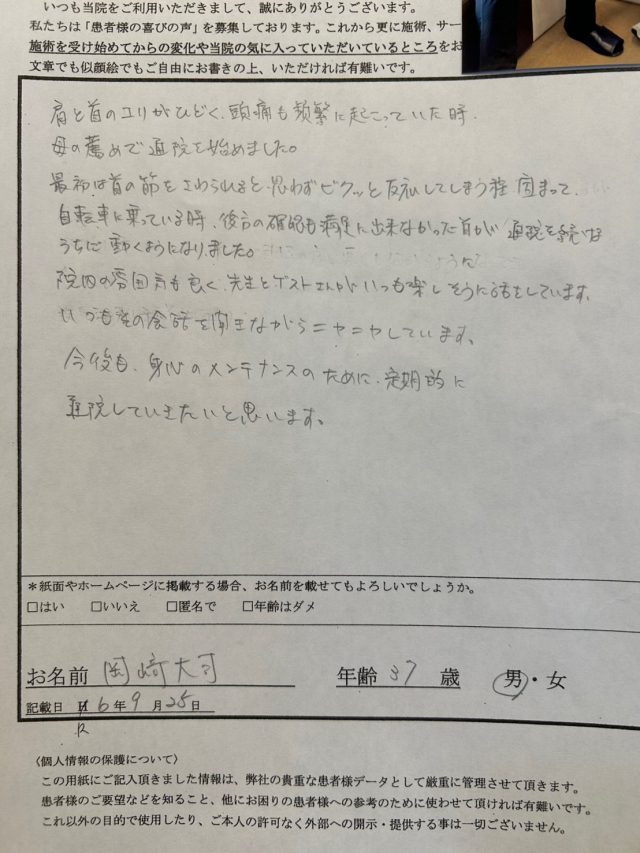 いつも当院をご利用いただきまして、誠にありがとうございます。
私たちは「患者様の喜びの声」を募集しております。これから更に施術、サー
施術を受け始めてからの変化や当院の気に入っていただいているところをお
文章でも似顔絵でもご自由にお書きの上、いただければ有難いです。
肩と首のコリがひどく、頭痛も頻繁に起こっていた時、
母の薦めで通院を始めました。
最初は首の筋をさわられると、思わずビクッと反応してしまう程固まって、
自転車に乗っている時、後方の確認も満足に出来なかった首が通院を続ける
うちに動くようになりました。
院内の雰囲気も良く、先生とゲストさんがいつも楽しそうに話をしています。
いつもその会話を聞きながらニヤニヤしています。
今後も、身心のメンテナンスのために、定期的に
通院していきたいと思います。
*紙面やホームページに掲載する場合、お名前を載せてもよろしいでしょうか。
□はい □いいえ □匿名で □年齢はダメ
お名前 岡﨑大司 年齢 37 歳 男・女
記載日 H 6年 9月 25日
R
〈個人情報の保護について〉
この用紙にご記入頂きました情報は、弊社の貴重な患者様データとして厳重に管理させて頂きます。
患者様のご要望などを知ること、他にお困りの患者様への参考のために使わせて頂ければ有難いです。
これ以外の目的で使用したり、ご本人の許可なく外部への開示・提供する事は一切ございません。